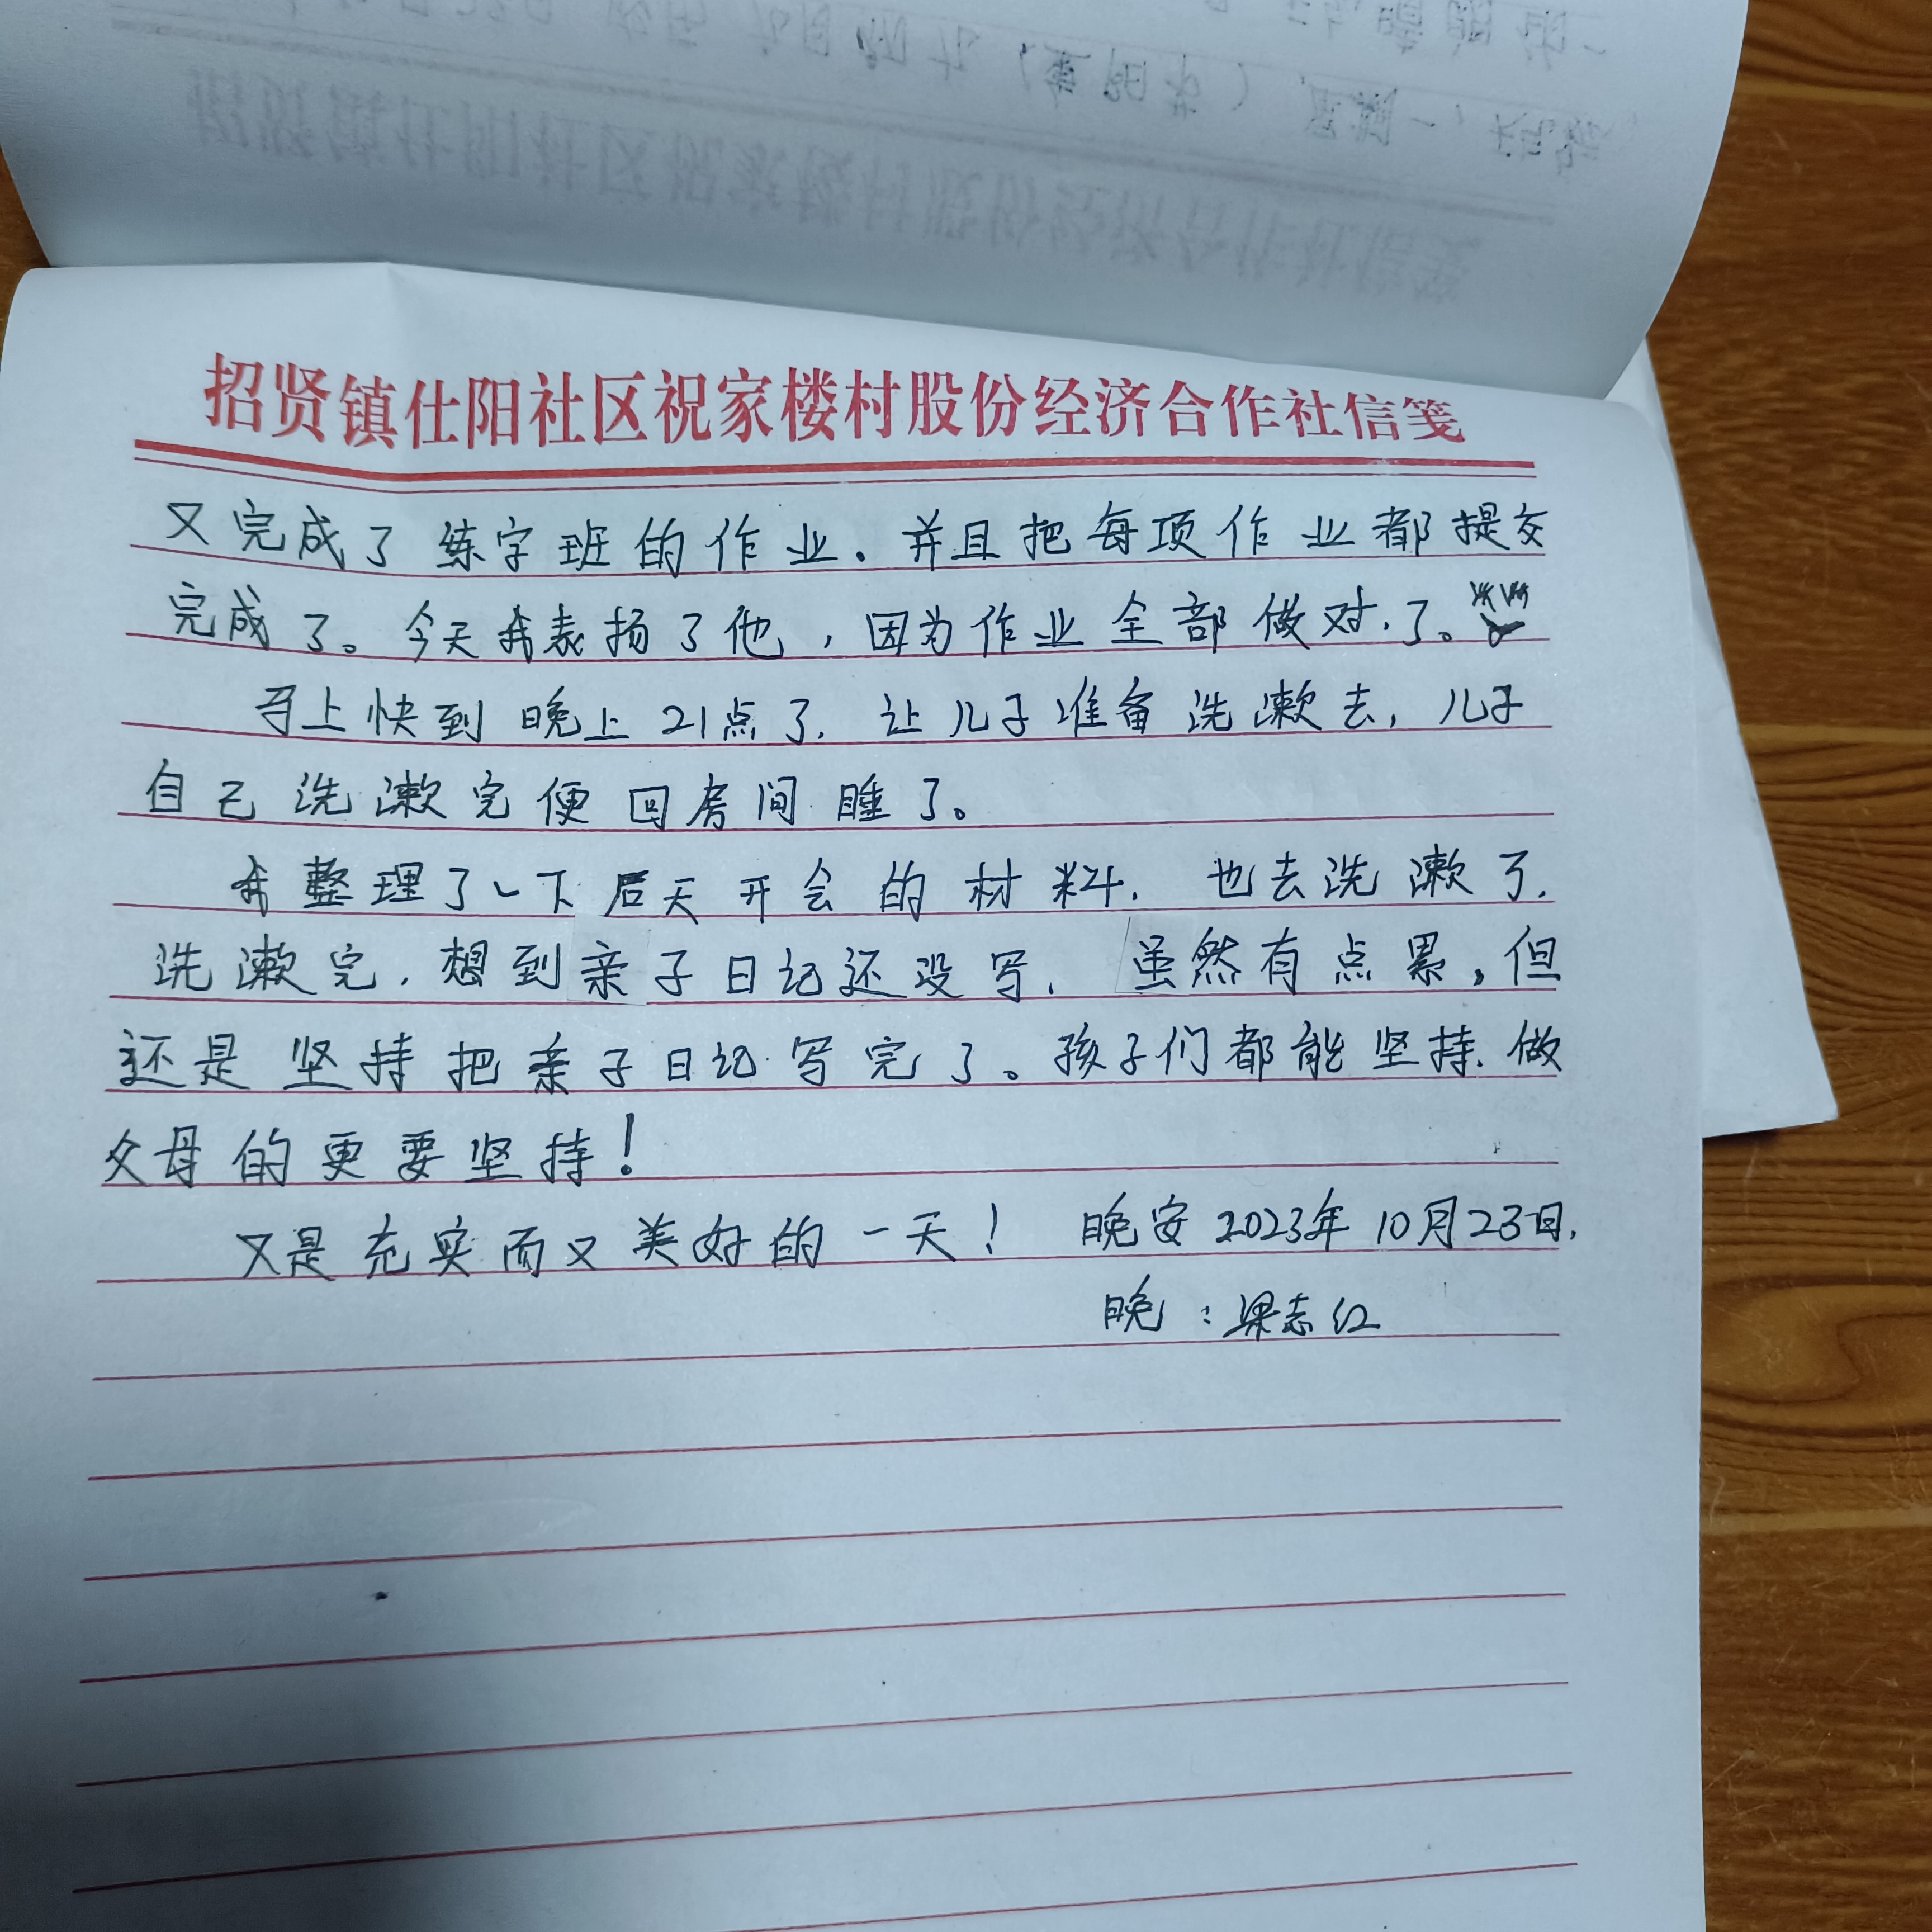 招贤镇仕阳社区祝家楼村股份经济合作社信笺
又完成了练字班的作业。并且把每项作业都提交
完成了。今天我表扬了他，因为作业全部做对了。
马上快到晚上21点了，让儿子准备洗漱去，儿子
自己洗漱完便回房间睡了。
我整理了一下后天开会的材料，也去洗漱了，
洗漱完，想到亲子日记还没写，虽然有点累，但
还是坚持把亲子日记写完了。孩子们都能坚持，做
父母的更要坚持！
又是充实而又美好的一天！ 晚安 2023年10月23日，
晚：梁志红